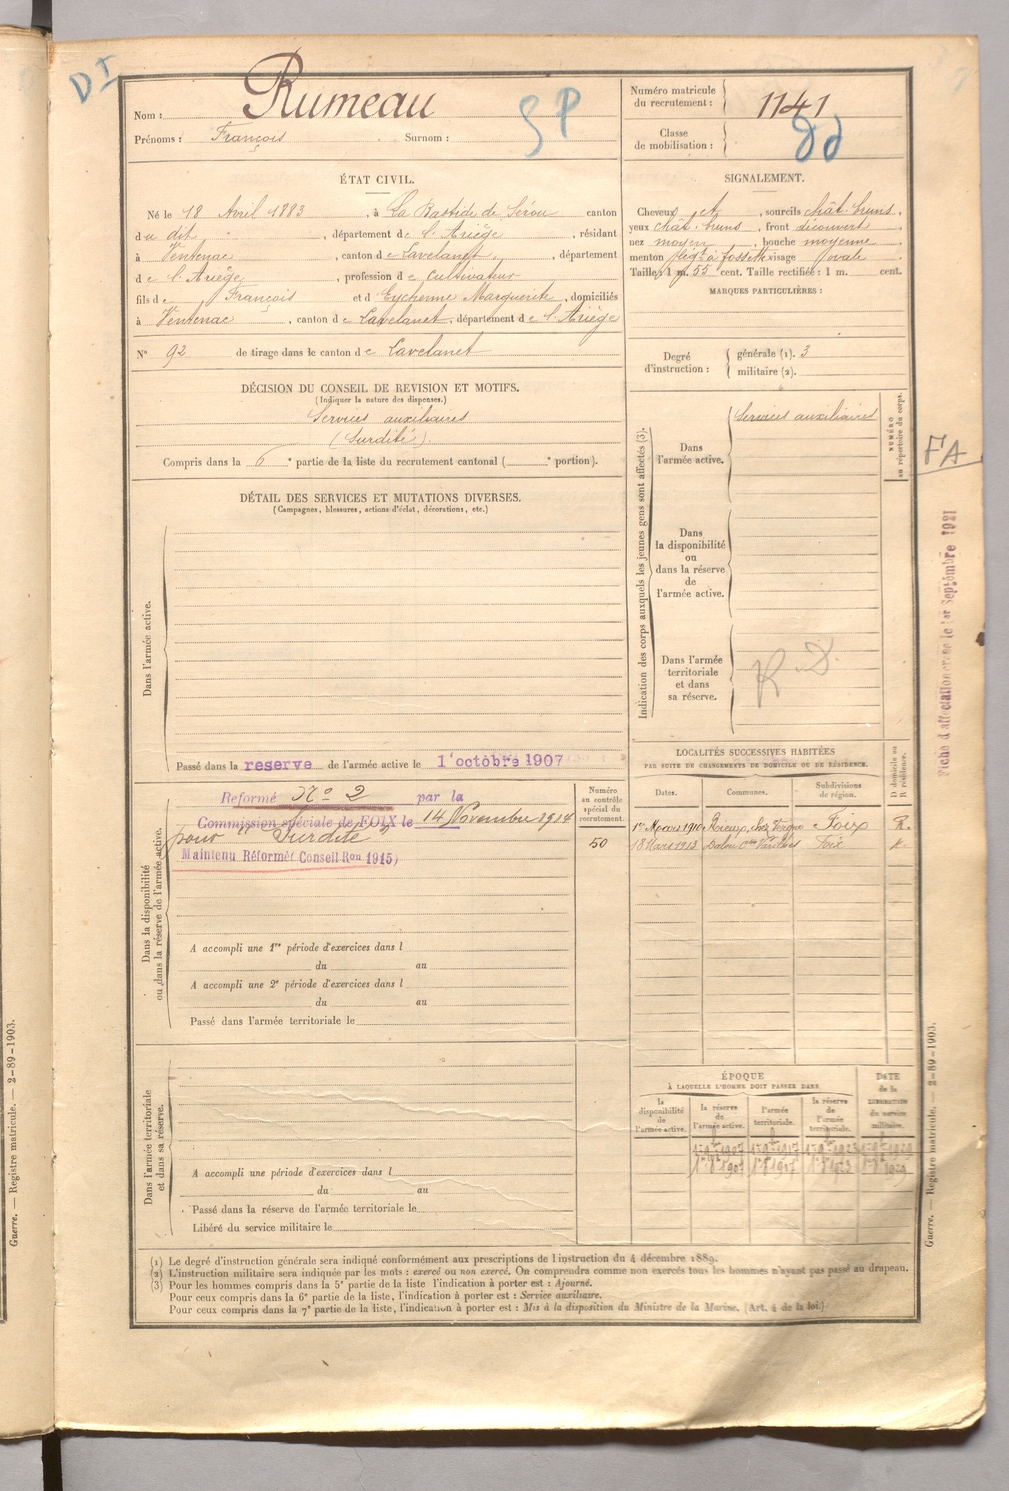 D I
Nom : Rumeau
Prénoms : François Surnom :
S P
Numéro matricule
du recrutement : 1141
Classe
de mobilisation :
ÉTAT CIVIL.
Né le 18 Avril 1883, à La Bastide de Sérou canton
du dit, département de l'Ariège, résidant
à Ventenac, canton de Lavelanet, département
de l'Ariège, profession de Cultivateur
fils de François et d Eychenne Marguerite, domiciliés
à Ventenac, canton de Lavelanet, département de l'Ariège
N° 92 de tirage dans le canton de Lavelanet
SIGNALEMENT.
Cheveux et, sourcils chât. bruns,
yeux chât. bruns, front découvert
nez moyen, bouche moyenne
menton à fossette visage ovale
Taille : 1 m. 55 cent. Taille rectifiée : 1 m. cent.
MARQUES PARTICULIÈRES :
Degré
d'instruction :
générale (1). 3
militaire (2).
DÉCISION DU CONSEIL DE REVISION ET MOTIFS.
(Indiquer la nature des dispenses.)
Services auxiliaires
(Surdité)
Compris dans la 6e partie de la liste du recrutement cantonal ( e portion).
DÉTAIL DES SERVICES ET MUTATIONS DIVERSES.
(Campagnes, blessures, actions d'éclat, décorations, etc.)
Dans l'armée active.
Passé dans la reserve de l'armée active le 1er octobre 1907
Indication des corps auxquels les jeunes gens sont affectés (3).
Dans
l'armée active.
Services auxiliaires
NUMÉRO
au répertoire du corps.
Dans
la disponibilité
ou
dans la réserve
de
l'armée active.
Dans l'armée
territoriale
et dans
sa réserve.
R. D.
FA
Fiche d'affectation créée le 1er Septembre 1921
Dans la disponibilité
ou dans la réserve de l'armée active.
Reformé N° 2 par la
Commission spéciale de FOIX le 14 Novembre 1914
pour "Surdité"
Maintenu Réformé (Conseil Ron 1915)
Numéro
au contrôle
spécial du
recrutement.
50
A accompli une 1re période d'exercices dans l
du au
A accompli une 2e période d'exercices dans l
du au
Passé dans l'armée territoriale le
LOCALITÉS SUCCESSIVES HABITÉES
PAR SUITE DE CHANGEMENTS DE DOMICILE OU DE RÉSIDENCE.
D domicile ou
R résidence.
Dates. Communes. Subdivisions
de région.
1er Mars 1910 Rieux, chez Vergne Foix R.
18 Mars 1913 Dalou Cne Varilhes Foix R.
Dans l'armée territoriale
et dans sa réserve.
A accompli une période d'exercices dans l
du au
Passé dans la réserve de l'armée territoriale le
Libéré du service militaire le
ÉPOQUE
À LAQUELLE L'HOMME DOIT PASSER DANS
DATE
de la
LIBÉRATION
du service
militaire.
la
disponibilité
de
l'armée active.
la réserve
de
l'armée active.
l'armée
territoriale.
la réserve
de
l'armée
territoriale.
(1) Le degré d'instruction générale sera indiqué conformément aux prescriptions de l'instruction du 4 décembre 1889.
(2) L'instruction militaire sera indiquée par les mots : exercé ou non exercé. On comprendra comme non exercés tous les hommes n'ayant pas passé au drapeau.
(3) Pour les hommes compris dans la 5e partie de la liste l'indication à porter est : Ajourné.
Pour ceux compris dans la 6e partie de la liste, l'indication à porter est : Service auxiliaire.
Pour ceux compris dans la 7e partie de la liste, l'indication à porter est : Mis à la disposition du Ministre de la Marine. (Art. 4 de la loi.)
Guerre. — Registre matricule. — 2-89-1903.
Guerre. — Registre matricule. — 2-89-1903.